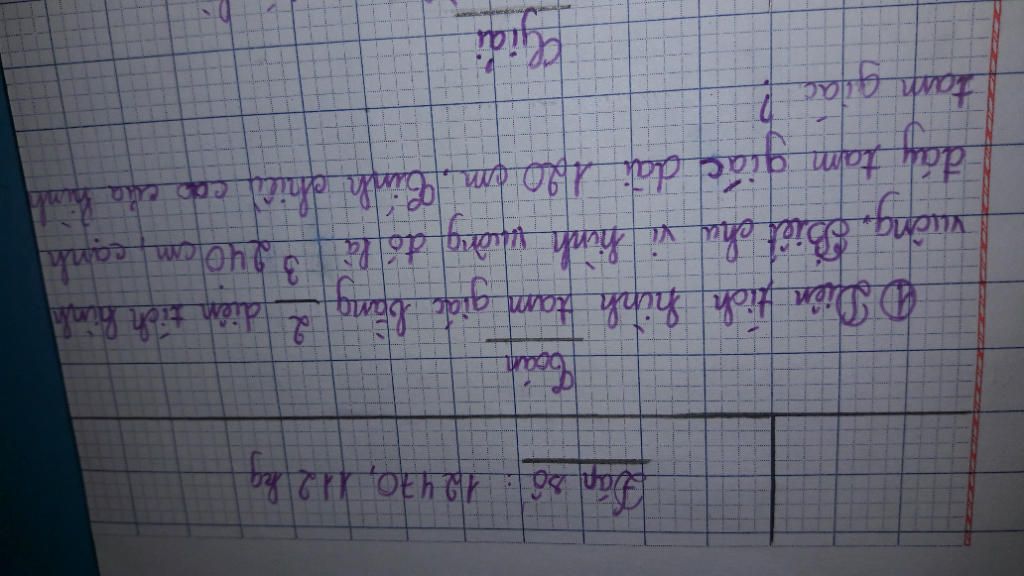 Đáp số : 12470,112 kg
Toán
① Diện tích hình tam giác bằng 2/3 diện tích hình
vuông. Biết chu vi hình vuông đó là 240 cm, cạnh
đáy tam giác dài 120 cm. Tính chiều cao của hình
tam giác ?
Giải